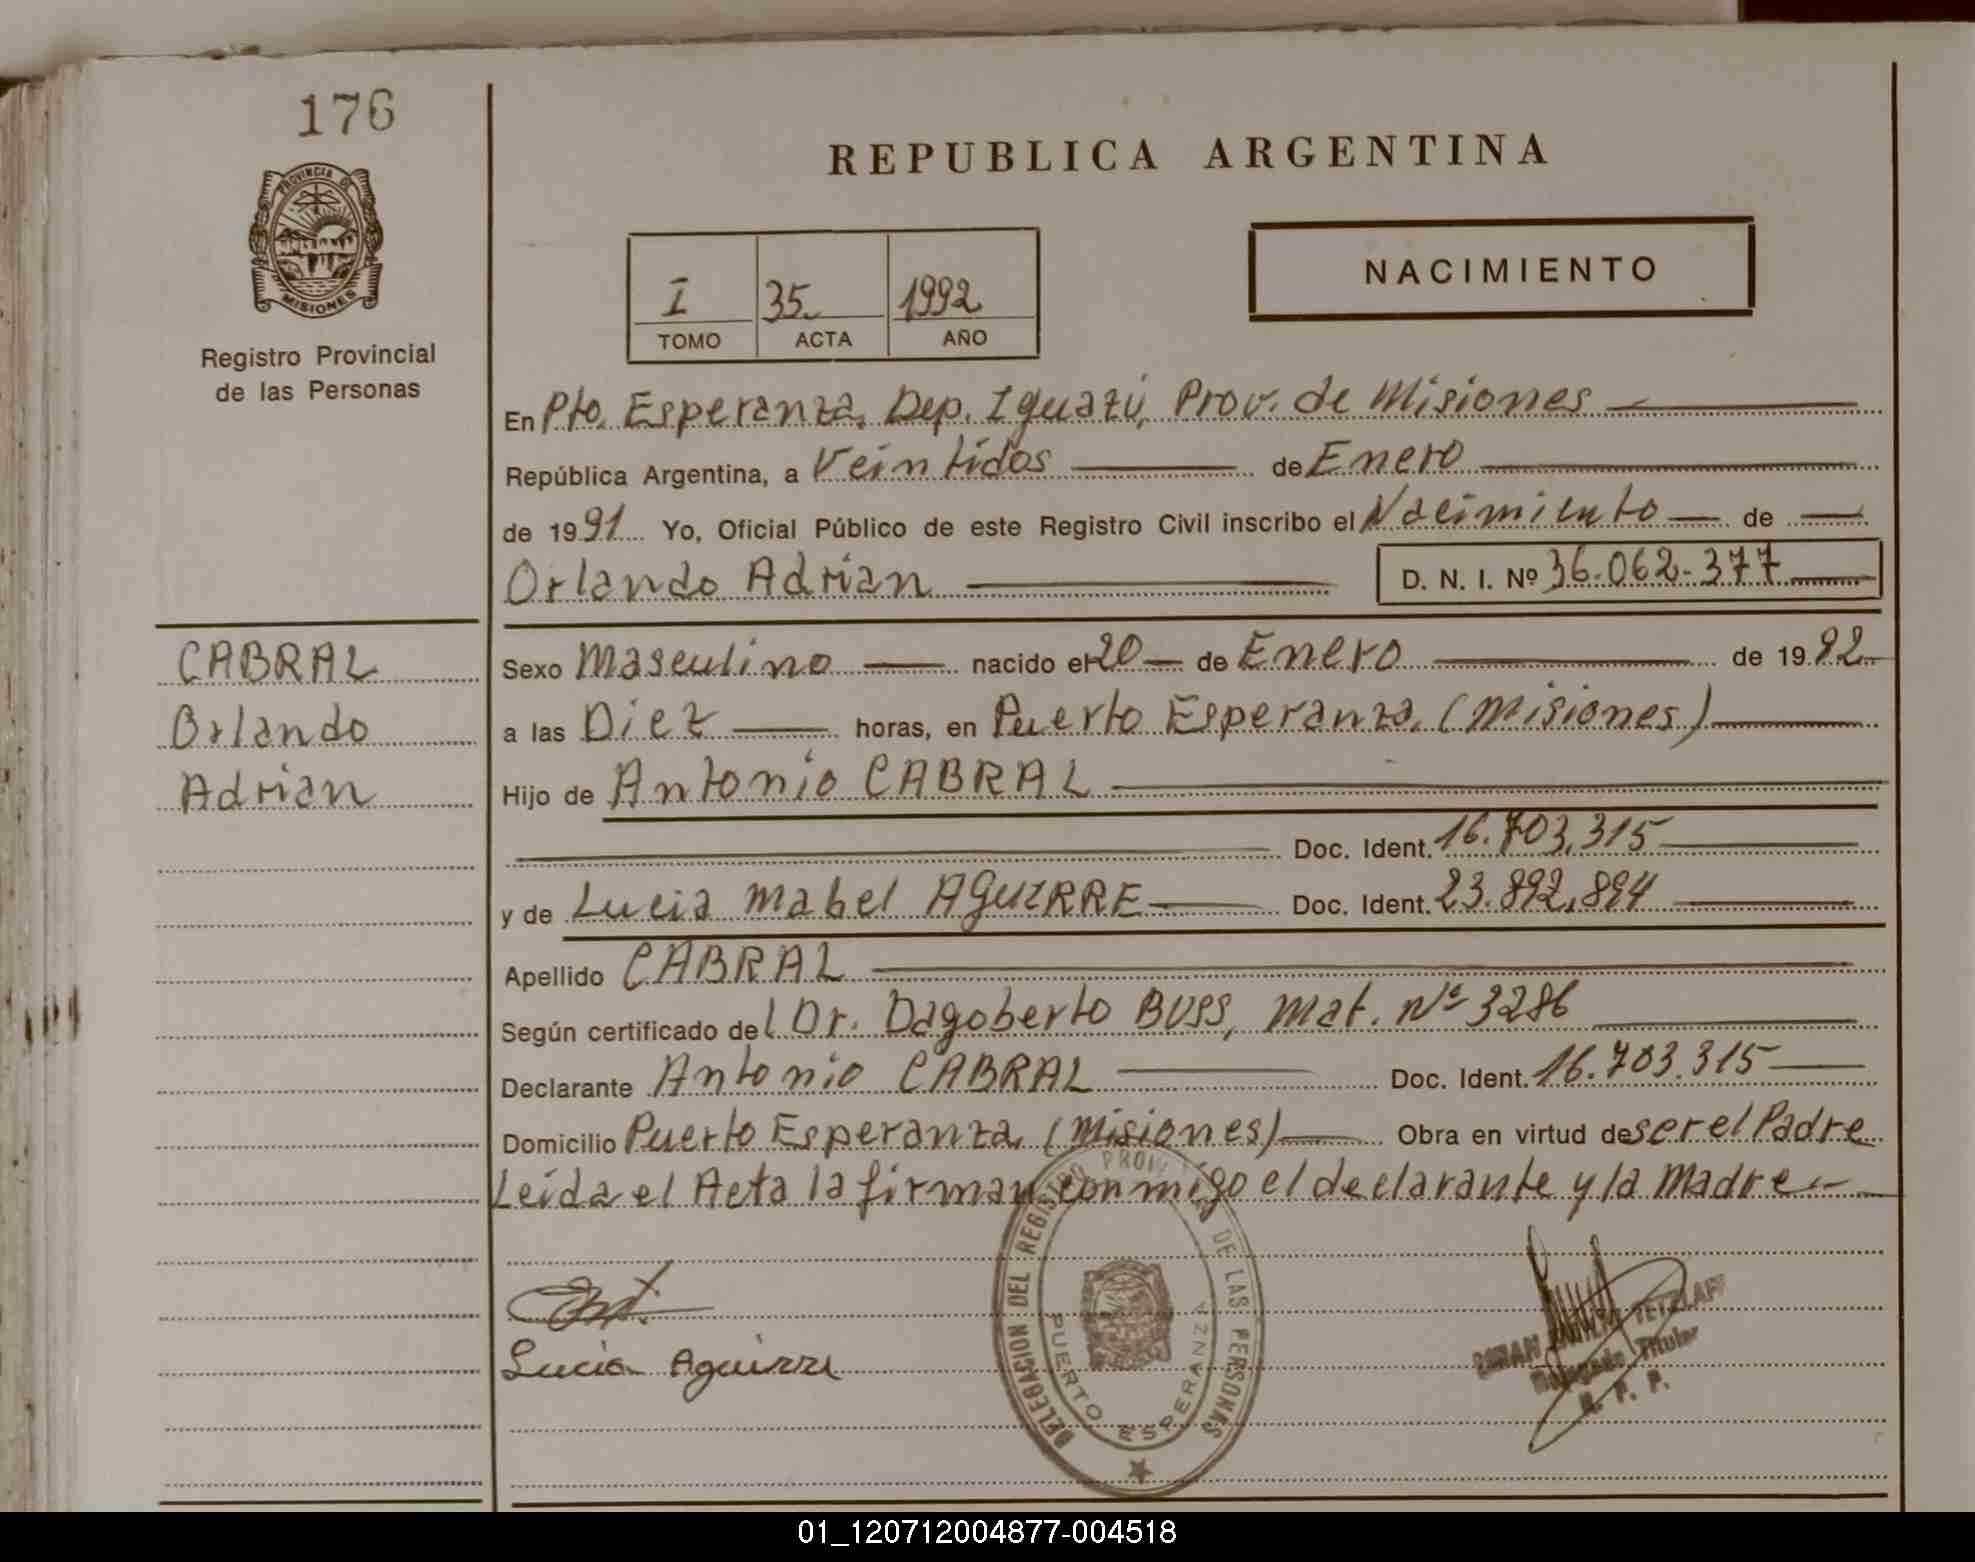 176
PROVINCIA DE
MISIONES
Registro Provincial
de las Personas
REPUBLICA ARGENTINA
NACIMIENTO
I 35 1992
TOMO ACTA AÑO
En Pto. Esperanza, Dep. Iguazú, Prov. de Misiones
República Argentina, a Veintidos de Enero
de 1991 Yo, Oficial Público de este Registro Civil inscribo el Nacimiento de
Orlando Adrian D. N. I. Nº 36.062.377
CABRAL
Orlando
Adrian
Sexo Masculino nacido el 20 de Enero de 1992
a las Diez horas, en Puerto Esperanza, (Misiones)
Hijo de Antonio CABRAL
Doc. Ident. 16.703.315
y de Lucia Mabel AGUIRRE Doc. Ident. 23.892.894
Apellido CABRAL
Según certificado del Dr. Dagoberto BUSS, Mat. Nº 3286
Declarante Antonio CABRAL Doc. Ident. 16.703.315
Domicilio Puerto Esperanza, (Misiones) Obra en virtud de ser el Padre
Leida el Acta la firman conmigo el declarante y la Madre
Lucia Aguirre
DELEGACION DEL REGISTRO PROV DE LAS PERSONAS
PUERTO ESPERANZA
Delegado Titular
R. P. P.
01_120712004877-004518